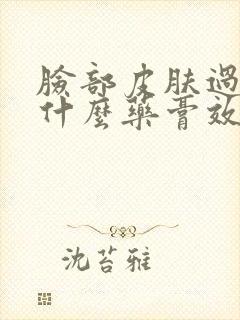 臉部皮肤過
什麼藥膏效
沈苔雅